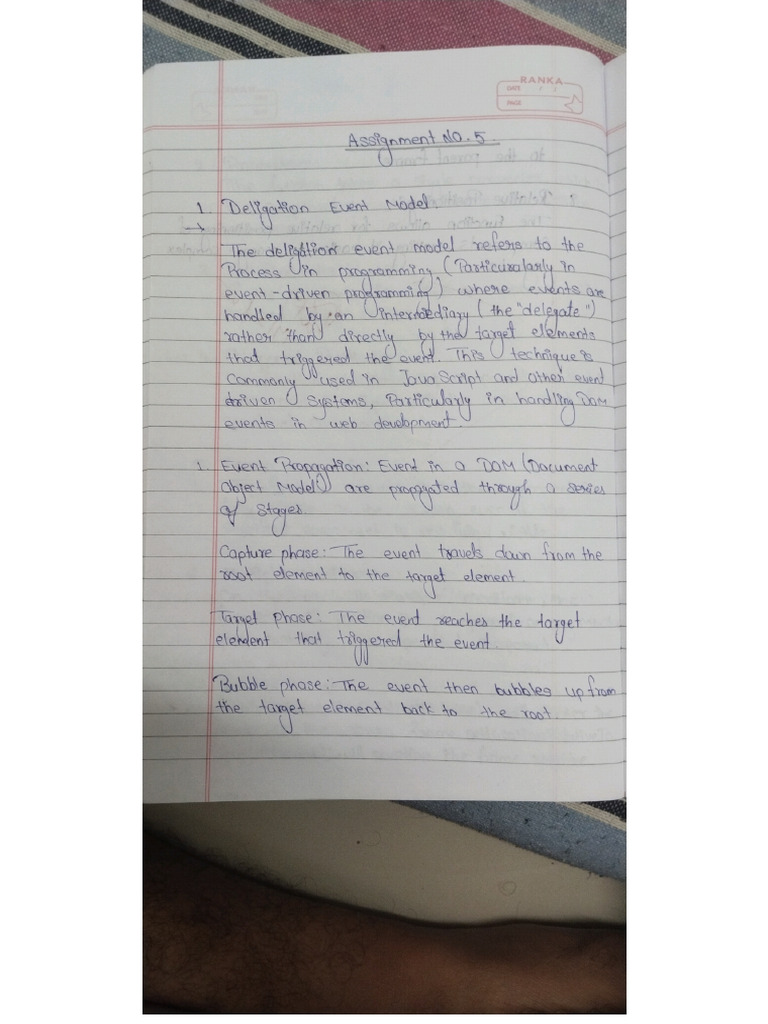 RANKA
DATE / /
PAGE
Assignment No. 5.
1. Deligation Event Model.
→
The deligation event model refers to the
Process in programming (Particuralarly in
event-driven programming) where events are
handled by an intermediary (the "delegate")
rather than directly by the target elements
that triggered the event. This technique is
commonly used in JavaScript and other event
driven Systems, Particularly in handling DOM
events in web development.
1. Event Propagation: Event in a DOM (Document
Object Model) are propgated through a series
of Stages.
Capture phase: The event travels down from the
root element to the target element.
Target phase: The event reaches the target
element that triggered the event.
Bubble phase: The event then bubbles up from
the target element back to the root.